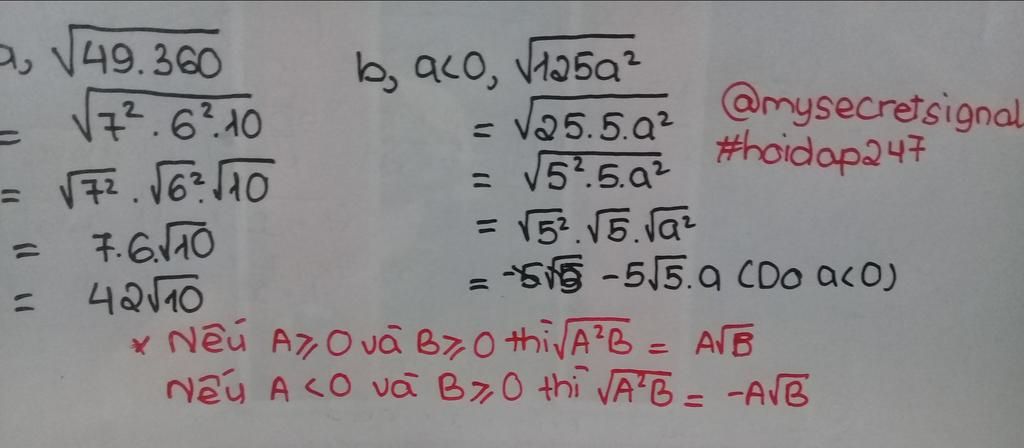 a, √49.360
= √7².6².10
= √7².√6².√10
= 7.6.√10
= 42√10
b, a<0, √125a²
= √25.5.a²
= √5².5.a²
= √5².√5.√a²
= -5√5.a (Do a<0)
@mysecretsignal
#hoidap247
* Nếu A⩾0 và B⩾0 thì √A²B = A√B
Nếu A<0 và B⩾0 thì √A²B = -A√B